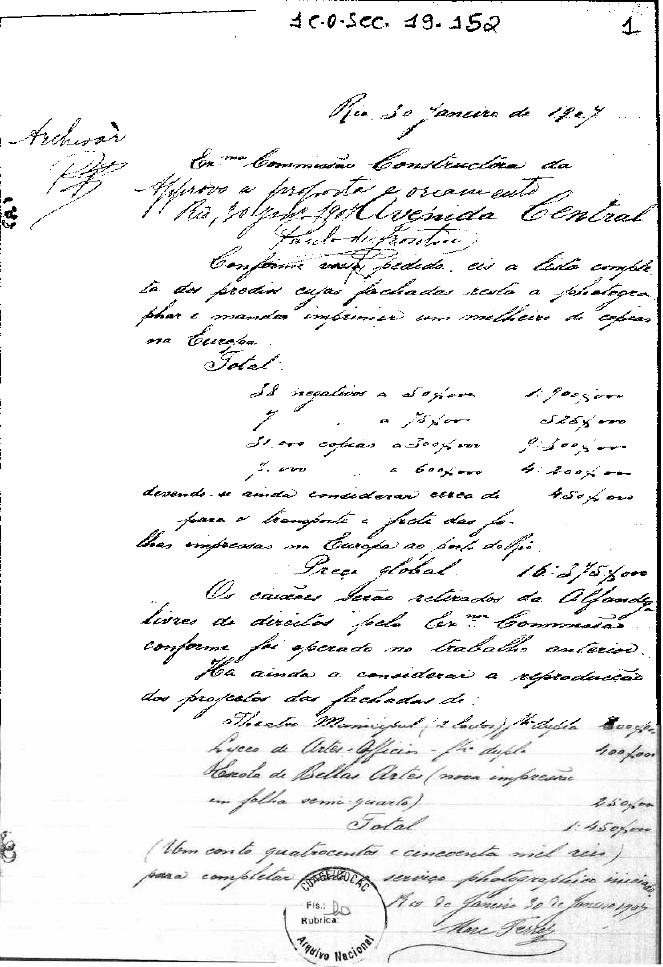 1C.0.SEC. 19.152
1
Rio 30 Janeiro de 1907
Archivar
Exma Commissão Constructora da
Approvo a proposta e orçamento
Rio, 30 Janr 1907
Avenida Central
Paulo de Frontin
Conforme vosso pedido, eis a lista comple-
ta dos predios cujas fachadas resta a photogra-
phar e mandar imprimir um milheiro de copias
na Europa.
Total:
38 negativos a 50$000 1:900$000
7 " a 75$000 525$000
31 000 copias a 300$000 9:300$000
7.000 a 600$000 4:200$000
devendo-se ainda considerar cerca de 450$000
para o transporte e frete das fo-
lhas impressas na Europa ao porto do Rio.
Preço global 16:375$000
Os caixões serão retirados da Alfandega
livres de direitos pela Exma Commissão
conforme foi operado no trabalho anterior.
Ha ainda a considerar a reproducção
dos projectos das fachadas de:
Theatro Municipal (2 lados) fla dupla 800$000
Lyceo de Artes-Officin - fla dupla 400$000
Escola de Bellas Artes (nova impressão
em folha semi-quarto) 250$000
Total 1:450$000
(Um conto quatrocentos e cincoenta mil reis)
para completar serviço photographico
Rio de Janeiro 30 de Janeiro 1907
Marc Ferrez
Fls.:
Rubrica:
Arquivo Nacional